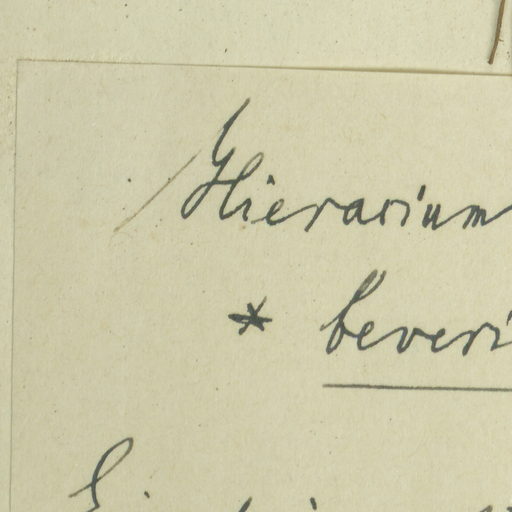 Hieracium
* beveri